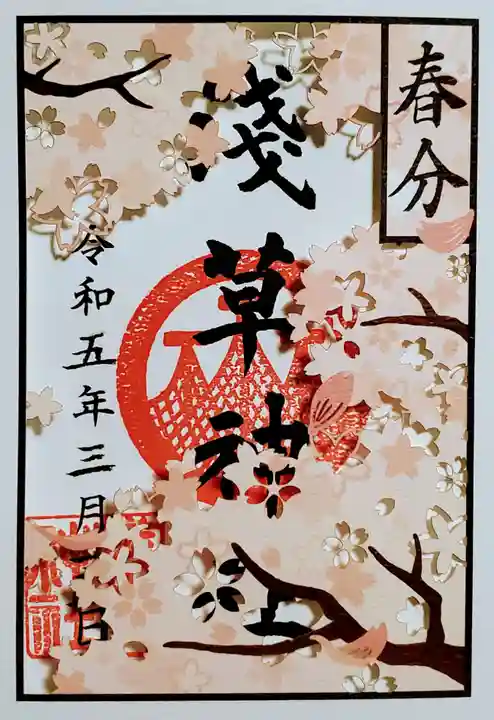 春分
淺草神社
令和五年三月
日